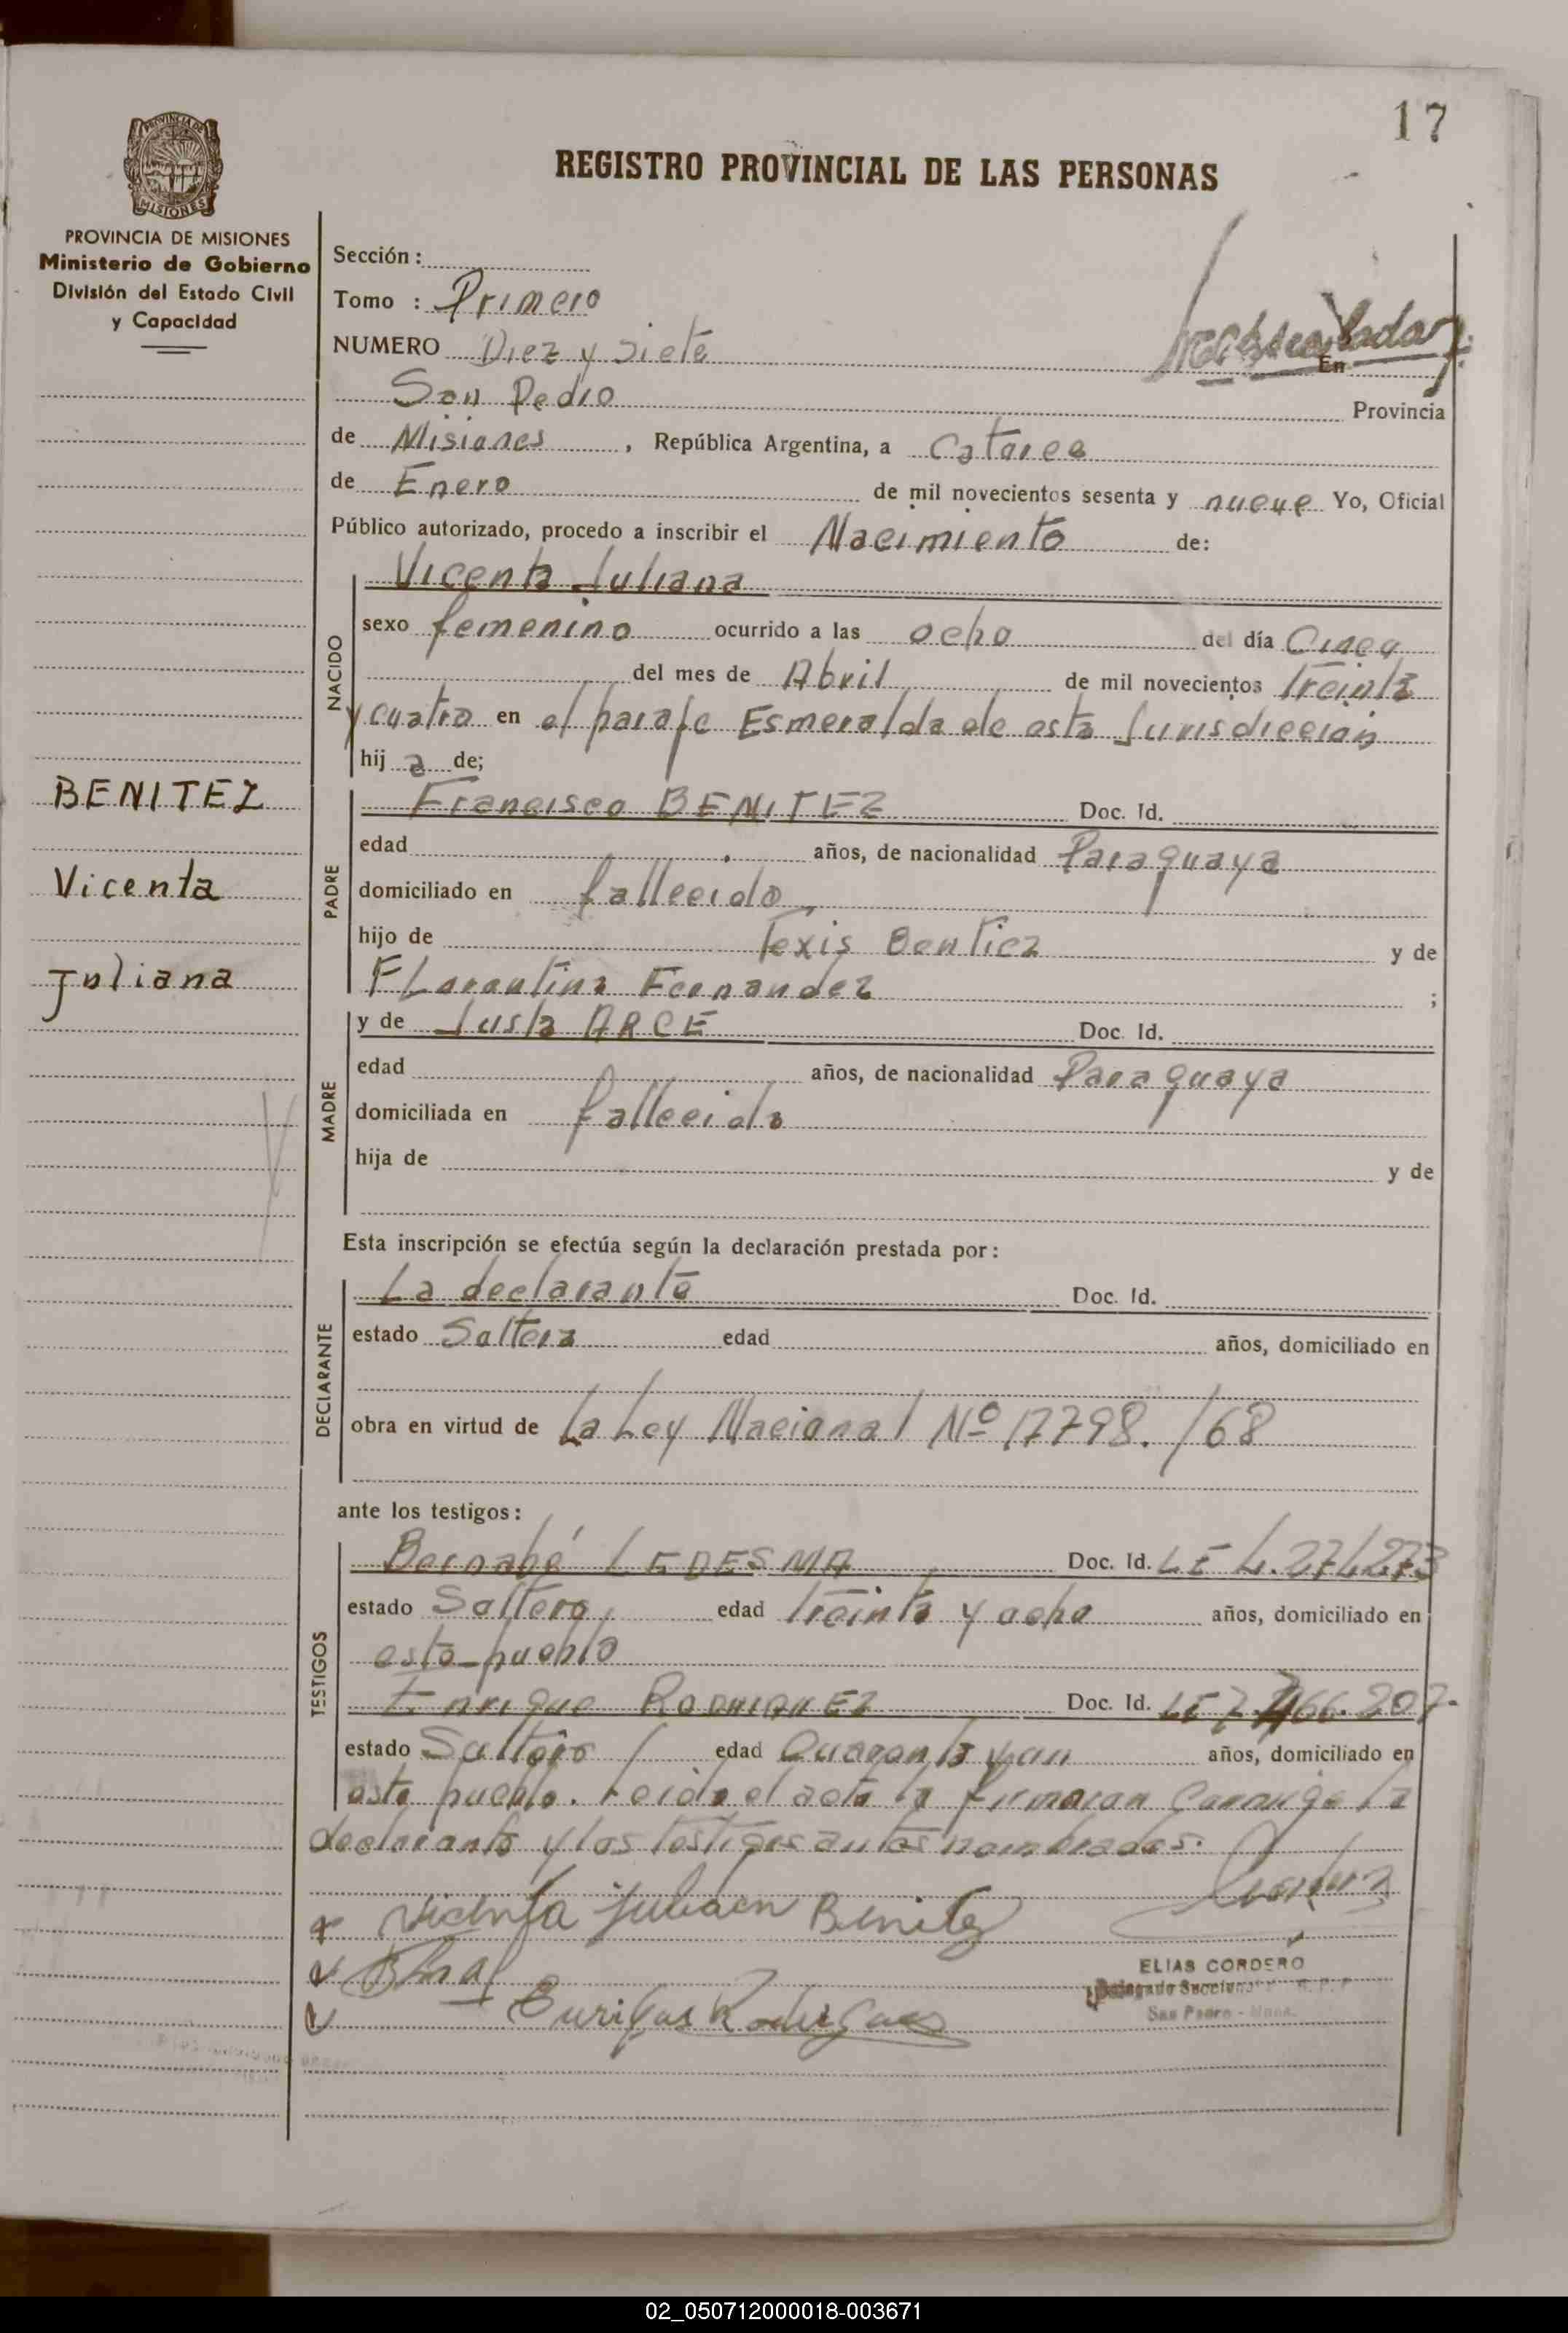 17
REGISTRO PROVINCIAL DE LAS PERSONAS
PROVINCIA DE MISIONES
PROVINCIA DE MISIONES
Ministerio de Gobierno
División del Estado Civil
y Capacidad
Sección:
Tomo : Primero
NUMERO Diez y siete
En
San Pedro Provincia
de Misiones, República Argentina, a Catorce
de Enero de mil novecientos sesenta y nueve Yo, Oficial
Público autorizado, procedo a inscribir el Nacimiento de:
NACIDO
Vicenta Juliana
sexo femenino ocurrido a las ocho del día Cinco
del mes de Abril de mil novecientos treinta
y cuatro en el paraje Esmeralda de esta Jurisdicción
hij a de;
BENITEZ
Vicenta
Juliana
PADRE
Francisco BENITEZ Doc. Id.
edad años, de nacionalidad Paraguaya
domiciliado en fallecido
hijo de Texis Benticz y de
FLorentina Fernandez ;
MADRE
y de Justa ARCE Doc. Id.
edad años, de nacionalidad Paraguaya
domiciliada en fallecida
hija de y de
Esta inscripción se efectúa según la declaración prestada por:
DECLARANTE
La declarante Doc. Id.
estado Soltera edad años, domiciliado en
obra en virtud de La Ley Nacional Nº 17798./68
ante los testigos:
TESTIGOS
Bernabé LEDESMA Doc. Id. LE 4.274273
estado Soltero edad treinta y ocho años, domiciliado en
este pueblo
Enrique RODRIGUEZ Doc. Id. LE 7. 66.207.
estado Soltero edad Cuarenta y un años, domiciliado en
este pueblo. Leida el acta la firmaron Conmigo la
declarante y los testigos antes nombrados.
Vicenta Julian Benitez
ELIAS CORDERO
Delegado Seccional R.P.P
San Pedro - Mnes.
02_050712000018-003671